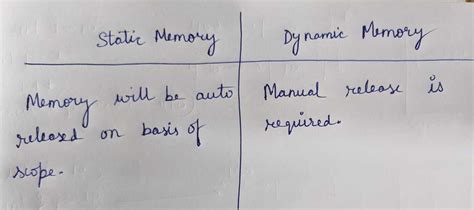 Static Memory
Dynamic Memory
Memory will be auto
released on basis of
scope.
Manual release is
required.